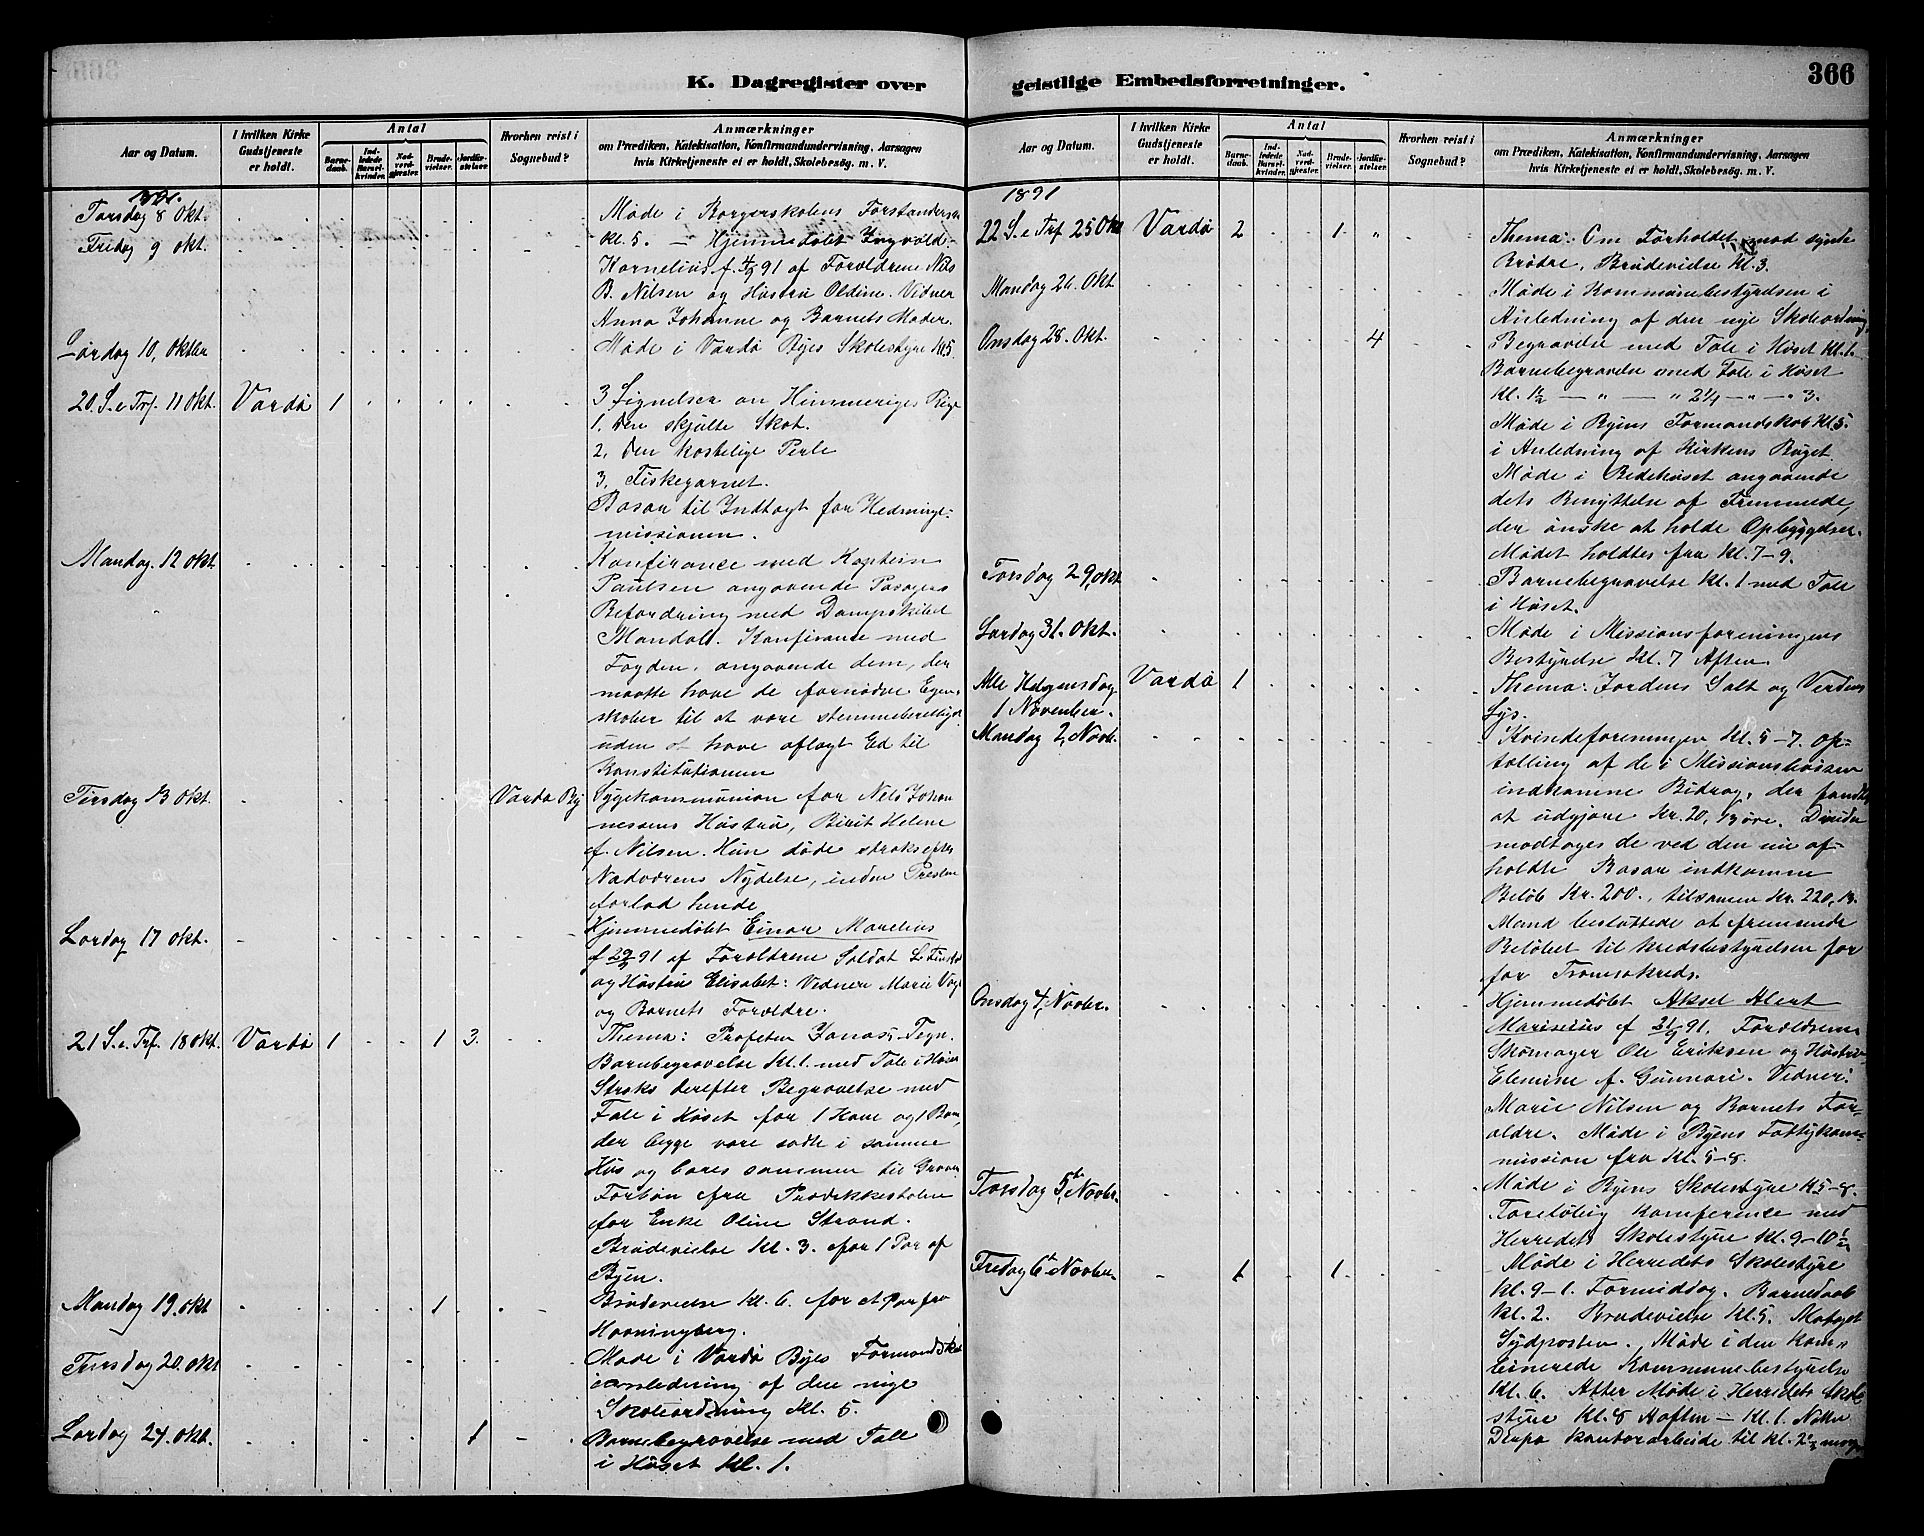 K. Dagregister over
Aar og Datum.
I hvilken Kirke Gudstjeneste er holdt.
Antal
Barne-daab.
Ind-ledede Barsel-kvinder.
Nad-verd-gjester.
Brude-vielser.
Jordfæ-stelser.
Hvorhen reist i Sognebud?
Anmærkninger
om Prædiken, Katekisation, Konfirmandundervisning, Aarsagen
hvis Kirketjeneste ei er holdt, Skolebesøg. m. V.
1891.
Torsdag 8 Okt.
Møde i Borgerskolens Forstanderska
Fredag 9 Okt.
kl. 5. — Hjemmedøbt Ingvald
Kornelius f. 91 af Forældrene Nils
B. Nilsen og Hustru Oldine. Vidner
Anna Johanne og Barnets Moder.
Lørdag 10, Oktbr
Møde i Vardø Byes Skolestyre Kl 5.
20. S. e Trf. 11 Okt. Vardø 1
3 Lignelser om Himmeriges Rige
1. den skjulte Skat.
2, den kostelige Perle
3, Fiskegarnet.
Basar til Indtægt for Hednings-
missionen.
Mandag. 12 Okt.
Konferance med Kaptein
Paulsen angaaende Pasagers
Befordring med Dampskibet
Mandal. Konferance med
Fogden, angaaende dem, der
maatte have de fornødne Egen-
skaber til at være stemmeberettiget
uden at have aflagt Ed til
Konstitutionen
Tirsdag 13 Okt. Vardø By
Sygekommunion for Nels Johan
nessens Hustru, Birit Helene
f. Nilsen. Hun døde straks efter
Nadverens Nydelse, inden Presten
forlod hende
Lørdag 17 Okt.
Hjemmedøbt Einar Marelius
f 91 af Forældrene Soldat L.
og Hustru Elisabet: Vidner Marie Vogt
og Barnets Forældre.
21 S. e. Trf. 18 Okt. Vardø 1 1 3.
Thema: Profeten Jonas, Tegn.
Barnebegravelse Kl. 1. med Tale i Huset
Straks derefter Begravelse med
Tale i Huset for 1 Kone og 1 Barn,
der begge vare satte i samme
Hus og bares sammen til Graven
Forbøn fra Prædikestolen
for Enke Oline Strand.
Brudevielse Kl. 3. for 1 Par af
Byen.
Mandag 19. Okt 1
Brudevielse Kl. 6. for et Par fra
Havningberg.
Tirsdag 20. Okt
Møde i Vardø Byes Formandskab
i anledning af den nye
Skoleordning Kl. 5.
Lørdag 24. Okt. 1
Barnebegravelse med Tale
i Huset Kl. 1.
geistlige Embedsforretninger.
366
Aar og Datum.
I hvilken Kirke Gudstjeneste er holdt.
Antal
Barne-daab.
Ind-ledede Barsel-kvinder.
Nad-verd-gjester.
Brude-vielser.
Jordfæ-stelser.
Hvorhen reist i Sognebud?
Anmærkninger
om Prædiken, Katekisation, Konfirmandundervisning, Aarsagen
hvis Kirketjeneste ei er holdt, Skolebesøg. m. V.
1891
22 S. e Trf 25 Okt Vardø 2 1 "
Thema: Om Forholdet mod synde
Brødre, Brudevielse Kl. 3.
Mandag 26. Okt.
Møde i Kommunebestyrelsen i
Anledning af den nye Skoleordning
Onsdag 28. Okt. 4
Begravelse med Tale i Huset Kl. 1.
Barnebegravelse med Tale i Huset
Kl. 1½ — " — " 2¼ — " — " 3.
Møde i Byens Formandskab Kl 5.
i Anledning af Kirkens Buget.
Møde i Bedehuset angaaende
dets Benyttelse af Fremmede,
der ønske at holde Opbyggelser.
Mødet holdtes fra Kl. 7–9.
Torsdag 29, okt
Barnebegravelse Kl. 1 med Tale
i Huset.
Lørdag 31. Okt.
Møde i Missionsforeningens
Bestyrelse Kl. 7 Aften.
Alle Helgensdag Vardø 1
Thema: Jordens Salt og Verdens
1 November.
Lys.
Mandag 2, Novbr.
Kvindeforeningen Kl. 5–7. Op-
tælling af de i Missionsbøssen
indkomne Bidrag, der fandtes
at udgjøre Kr. 20, 13 øre. Desuden
modtoges de ved den nu af-
holdte Basar indkomne
Beløb Kr. 200., tilsamen Kr. 220, 13.
Mand besluttede at fremsende
Beløbet til Kredsbestyrelsen for
for Tromsøkreds.
Onsdag 4, Novbr.
Hjemmedøbt Aksel Alert
f 91. Forældrene
Skomager Ole Eriksen og Hustru
Elemine f. Gunnari. Vedner:
Marie Nilsen og Barnets For-
ældre. Møde i Byens Fattigkom-
mission fra Kl. 5–8.
Torsdag 5, Novbr.
Møde i Byens Skolestyre Kl 5–8.
Foreløbig Konference med
Herredets Skolestyre Kl. 9–10½
Fredag 6 Novbr. 1 1.
Møde i Herredets Skolestyre
kl. 9–1. Formiddag. Barnedaab
kl. 2. Brudevielse kl. 5. Motaget
Sydposten. Møde i den kom-
binerede Kommunebestyrelse
kl. 6. Atter Møde i Herredets Skole
styre Kl. 8 Aften – Kl. 1. Natten
Kontorarbeide til kl. 2½ morgen